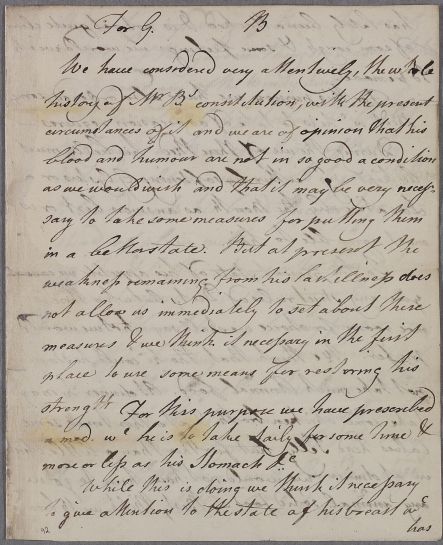 For G. B
We have considered very attentively, the whole
history of Mr B's constitution, with the present
circumstances of it and we are of opinion that his
blood and humour are not in so good a condition
as we would wish and that it may be very neces-
sary to take some measures for putting them
in a better state. But at present the
weakness remaining from his last illness does
not allow us immediately to set about these
measures & we think it necessary in the first
place to use some means for restoring his
strength For this purpose we have prescribed
a med. wc he is to take daily for some time &
more or less as his stomach &c
While this is doing we think it necessary
to give attention to the state of his breast wc
has
92